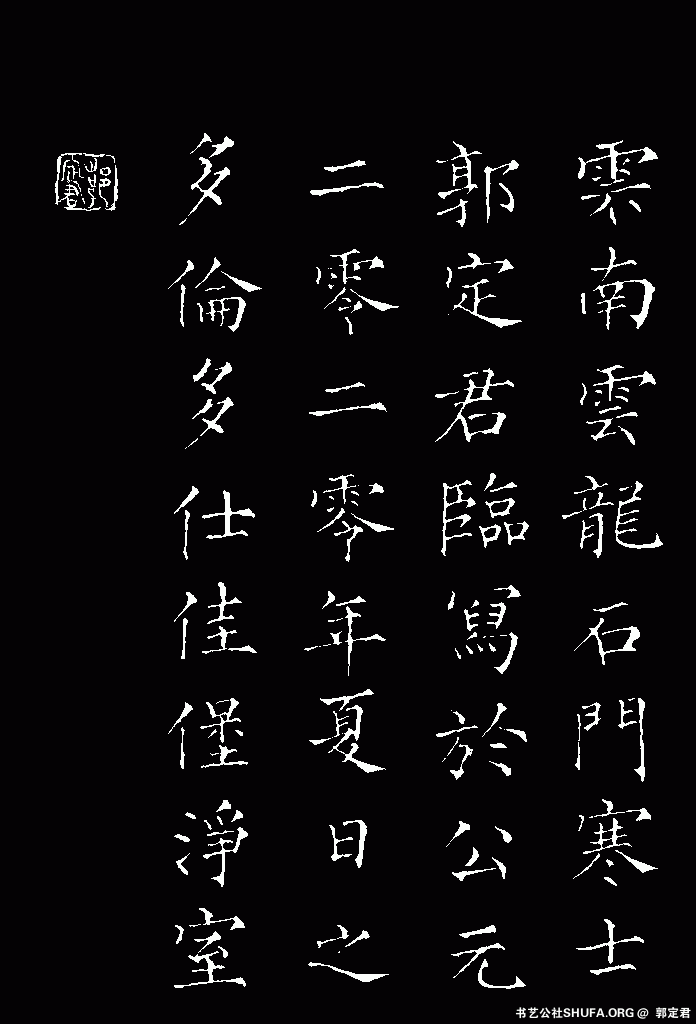 雲南雲龍石門寒士
郭定君臨寫於公元
二零二零年夏日之
多倫多仕佳堡淨室
郭定君
书艺公社SHUFA.ORG @ 郭定君